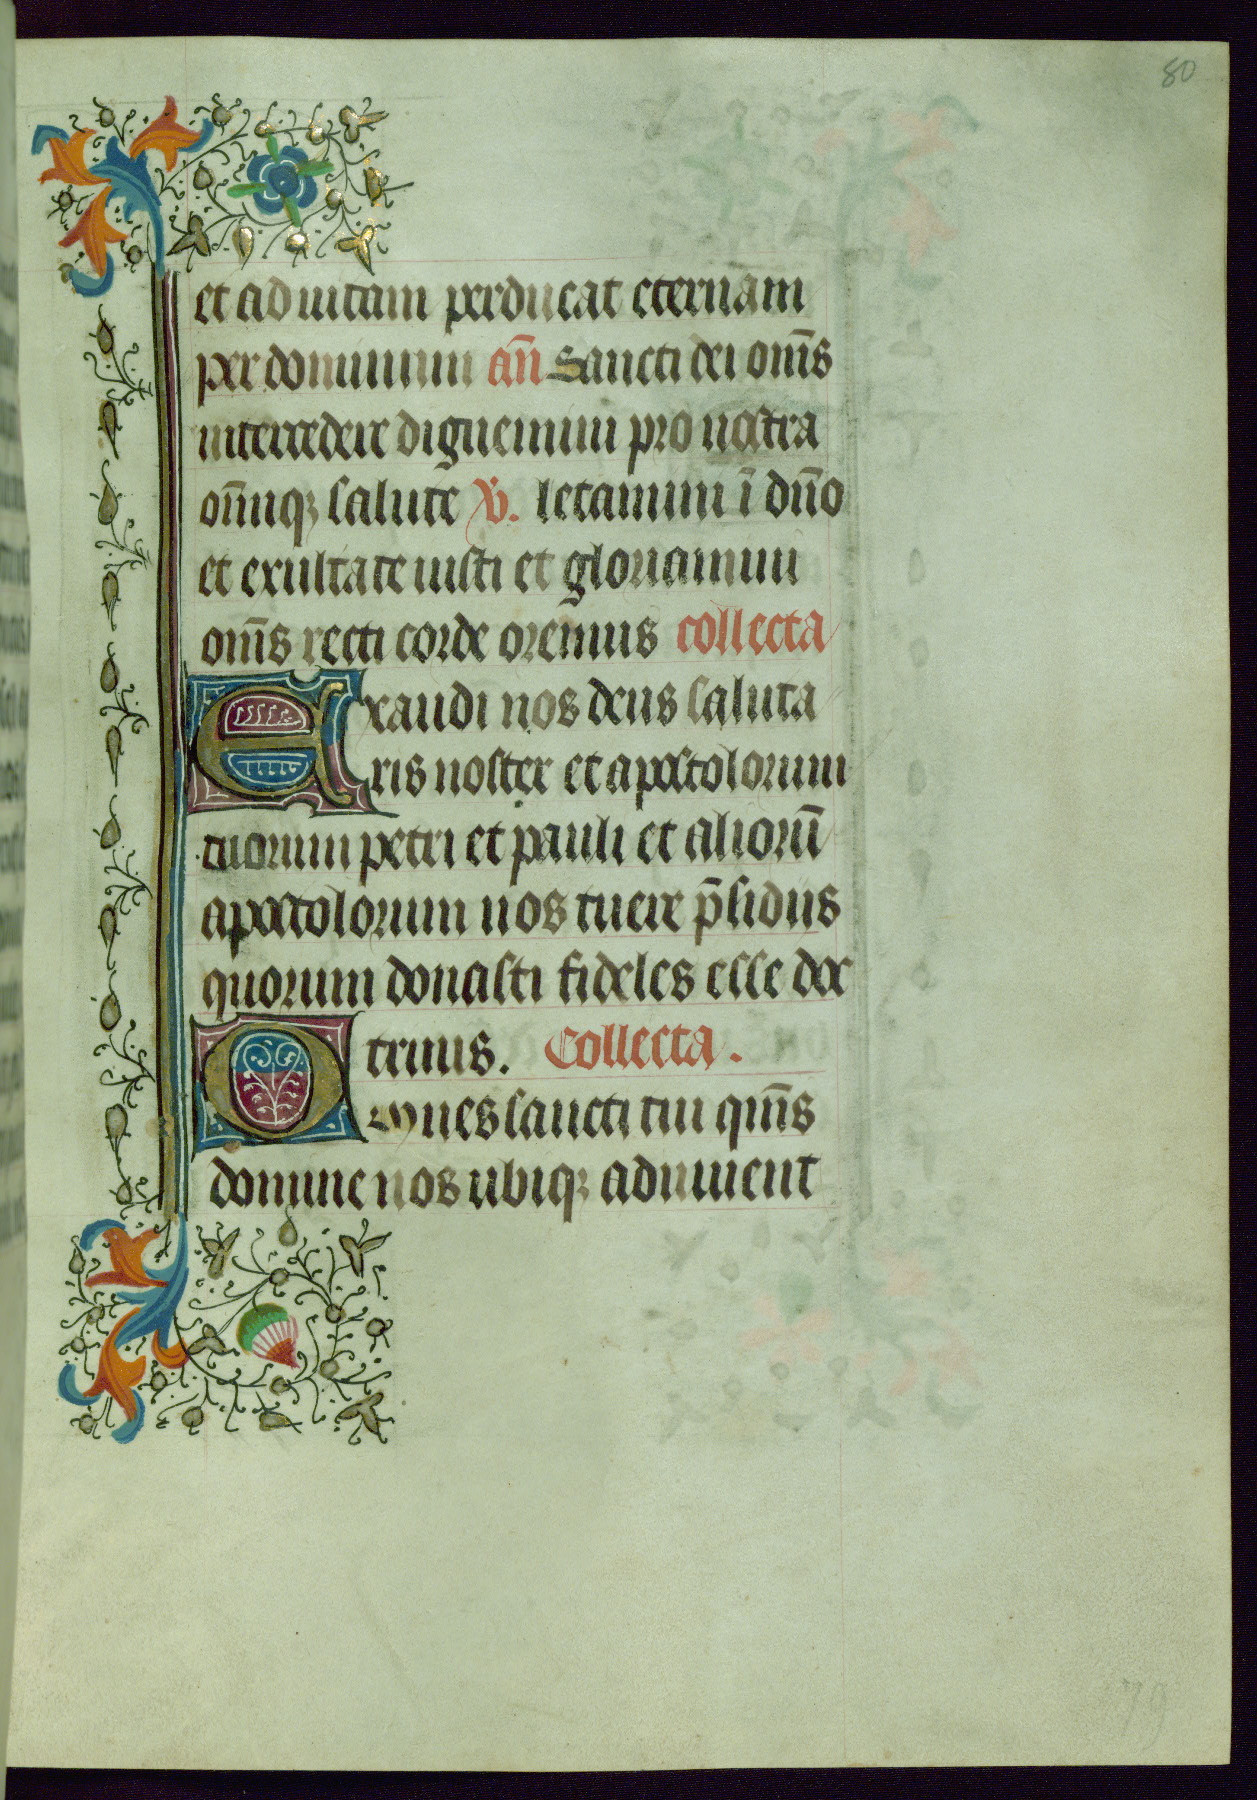 80
et ad uitam perducat eternam
per dominum an̄ Sancti dei om̄s
intercedere dignemini pro nostra
om̄niq; salute v̄. letamini ī dn̄o
et exultate iusti et gloriamini
om̄s recti corde oremus collecta
Exaudi nos deus saluta
ris noster et apostolorum
tuorum petri et pauli et aliorū
apostolorum nos tuere p̄sidiis
quorum donasti fideles esse doc
trinis. Collecta.
Omnes sancti tui qm̄s
domine nos ubiq; adiuuent
79